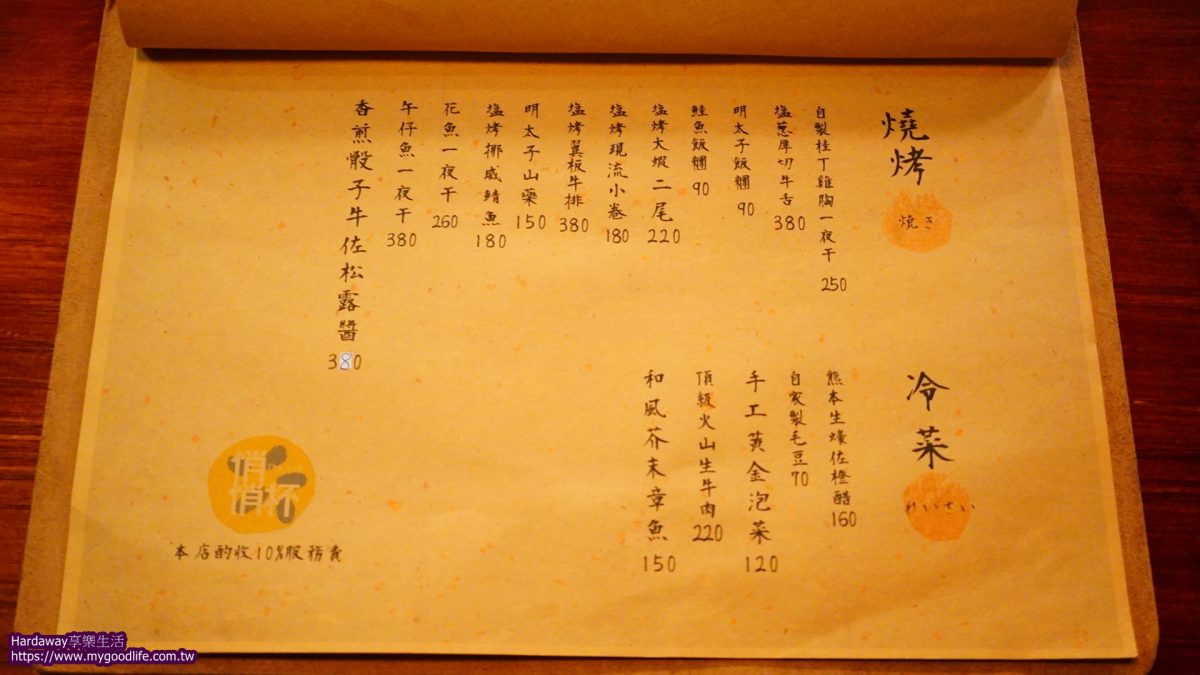 燒烤
焼き
自製桂丁雞胸一夜干 250
塩蔥厚切牛舌 380
明太子飯糰 90
鮭魚飯糰 90
塩烤大蝦二尾 220
塩烤現流小卷 180
塩烤翼板牛排 380
明太子山藥 150
塩烤挪威鯖魚 180
花魚一夜干 260
午仔魚一夜干 380
香煎骰子牛佐松露醬 380
冷菜
れいさい
熊本生蠔佐橙醋 160
自家製毛豆 70
手工黃金泡菜 120
頂級火山生牛肉 220
和風芥末章魚 150
悄悄杯
本店酌收10%服務費
Hardaway享樂生活
https://www.mygoodlife.com.tw